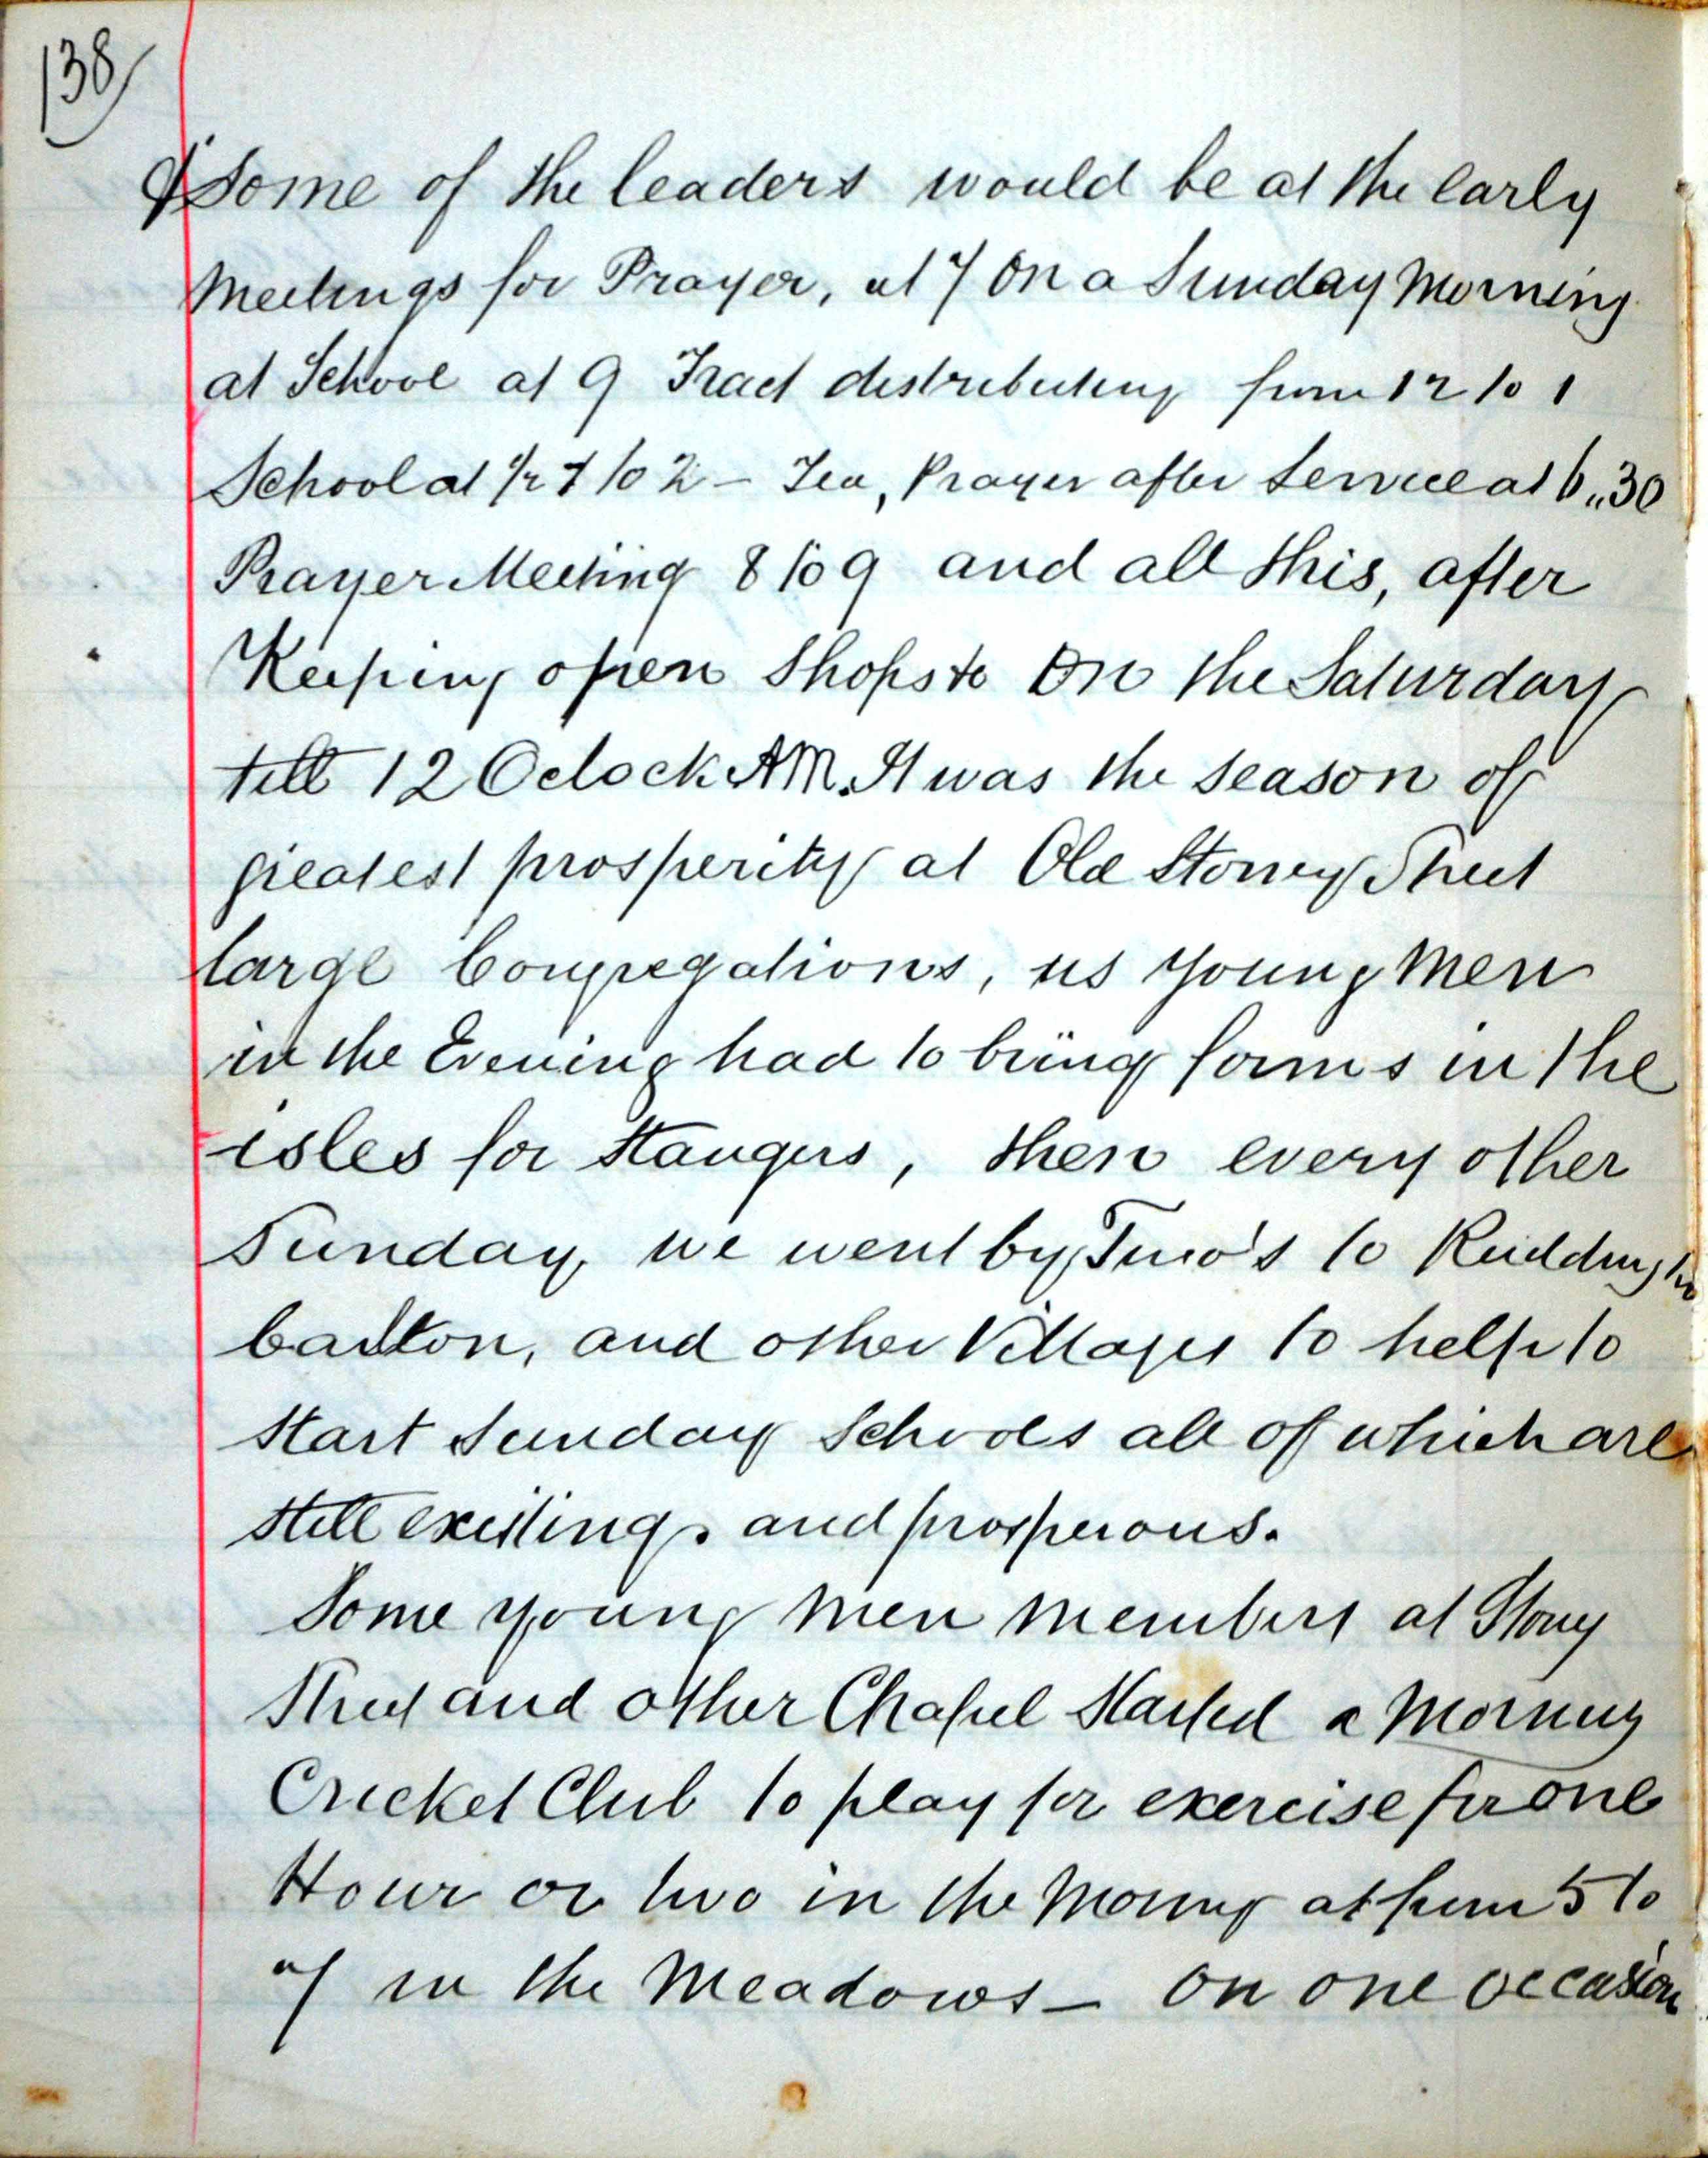 138
& Some of the leaders would be at the early
Meetings for Prayer, at 7 On a Sunday Morning
at School at 9 Tract distributing from 12 to 1
School at 1/2 to 2 - Tea, Prayer after Service at 6,,30
Prayer Meeting 8 to 9 and all this, after
Keeping open Shops to On the Saturday
till 12 Oclock AM. It was the season of
greatest prosperity at Old Stoney Street
large Congregations, us young Men
in the Evening had to bring forms in the
isles for Stangers, then every other
Sunday, we went by Two's to Ruddington
Carlton, and other Villages to help to
Start Sunday Schools all of which are
still existing. and prosperous.
Some young men members at Stony
Street and other Chapel Started a Morning
Cricket Club to play for exercise for one
Hour or two in the Morning at from 5 to
7 in the Meadows - On one occasion